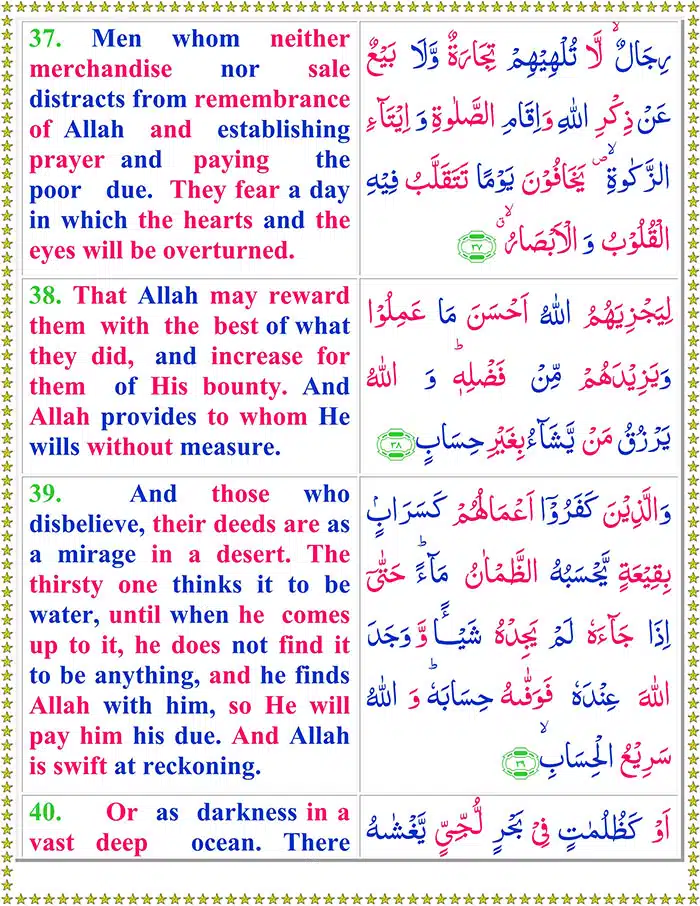 37. Men whom neither
merchandise nor sale
distracts from remembrance
of Allah and establishing
prayer and paying the
poor due. They fear a day
in which the hearts and the
eyes will be overturned.
رِجَالٌ ۙ لَّا تُلْهِيْهِمْ تِجَارَةٌ وَّلَا بَيْعٌ
عَنْ ذِكْرِ اللّٰهِ وَاِقَامِ الصَّلٰوةِ وَ اِيْتَآءِ
الزَّكٰوةِ ۙ يَخَافُوْنَ يَوْمًا تَتَقَلَّبُ فِيْهِ
الْقُلُوْبُ وَ الْاَبْصَارُ ۙ ٣٧
38. That Allah may reward
them with the best of what
they did, and increase for
them of His bounty. And
Allah provides to whom He
wills without measure.
لِيَجْزِيَهُمُ اللّٰهُ اَحْسَنَ مَا عَمِلُوْا
وَيَزِيْدَهُمْ مِّنْ فَضْلِهٖ ؕ وَ اللّٰهُ
يَرْزُقُ مَنْ يَّشَآءُ بِغَيْرِ حِسَابٍ ٣٨
39. And those who
disbelieve, their deeds are as
a mirage in a desert. The
thirsty one thinks it to be
water, until when he comes
up to it, he does not find it
to be anything, and he finds
Allah with him, so He will
pay him his due. And Allah
is swift at reckoning.
وَالَّذِيْنَ كَفَرُوْۤا اَعْمَالُهُمْ كَسَرَابٍۭ
بِقِيْعَةٍ يَّحْسَبُهُ الظَّمْاٰنُ مَآءً ؕ حَتّٰۤى
اِذَا جَآءَهٗ لَمْ يَجِدْهُ شَيْـًٔا وَّ وَجَدَ
اللّٰهَ عِنْدَهٗ فَوَفّٰىهُ حِسَابَهٗ ؕ وَ اللّٰهُ
سَرِيْعُ الْحِسَابِ ۙ ٣٩
40. Or as darkness in a
vast deep ocean. There
اَوْ كَظُلُمٰتٍ فِيْ بَحْرٍ لُّجِّيٍّ يَّغْشٰىهُ